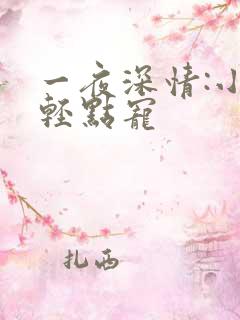 一夜深情:小
輕點寵
扎西